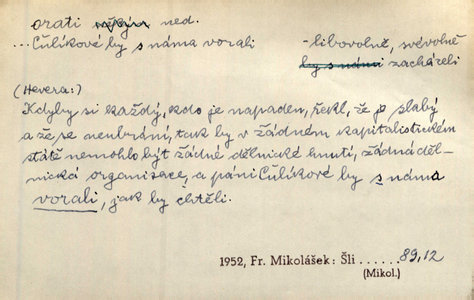 orati někým ned.
...Čulíkové by s náma vorali -libovolně, svévolně
by s námi zacházeli
(Hevera:)
Kdyby si každý, kdo je napaden, řekl, že je slabý
a že se neubrání, tak by v žádném kapitalistickém
státě nemohlo být žádné dělnické hnutí, žádná děl-
nická organisace, a páni Čulíkové by s náma
vorali, jak by chtěli.
1952, Fr. Mikolášek: Šli ...... 89,12
(Mikol.)